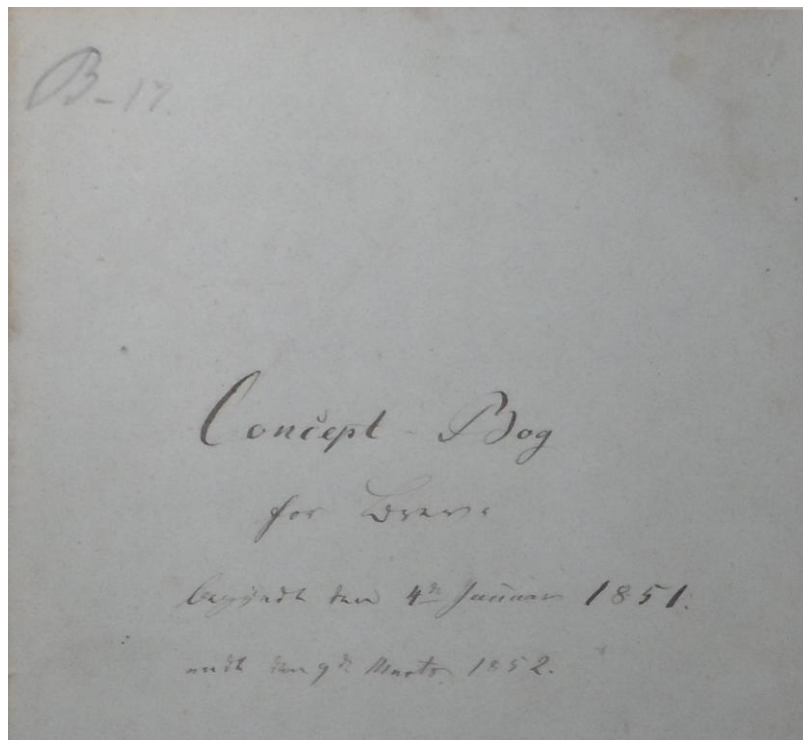 B-17.
Concept-Bog
for Breve
begyndt den 4de Januar 1851.
endt den 9de Marts 1852.